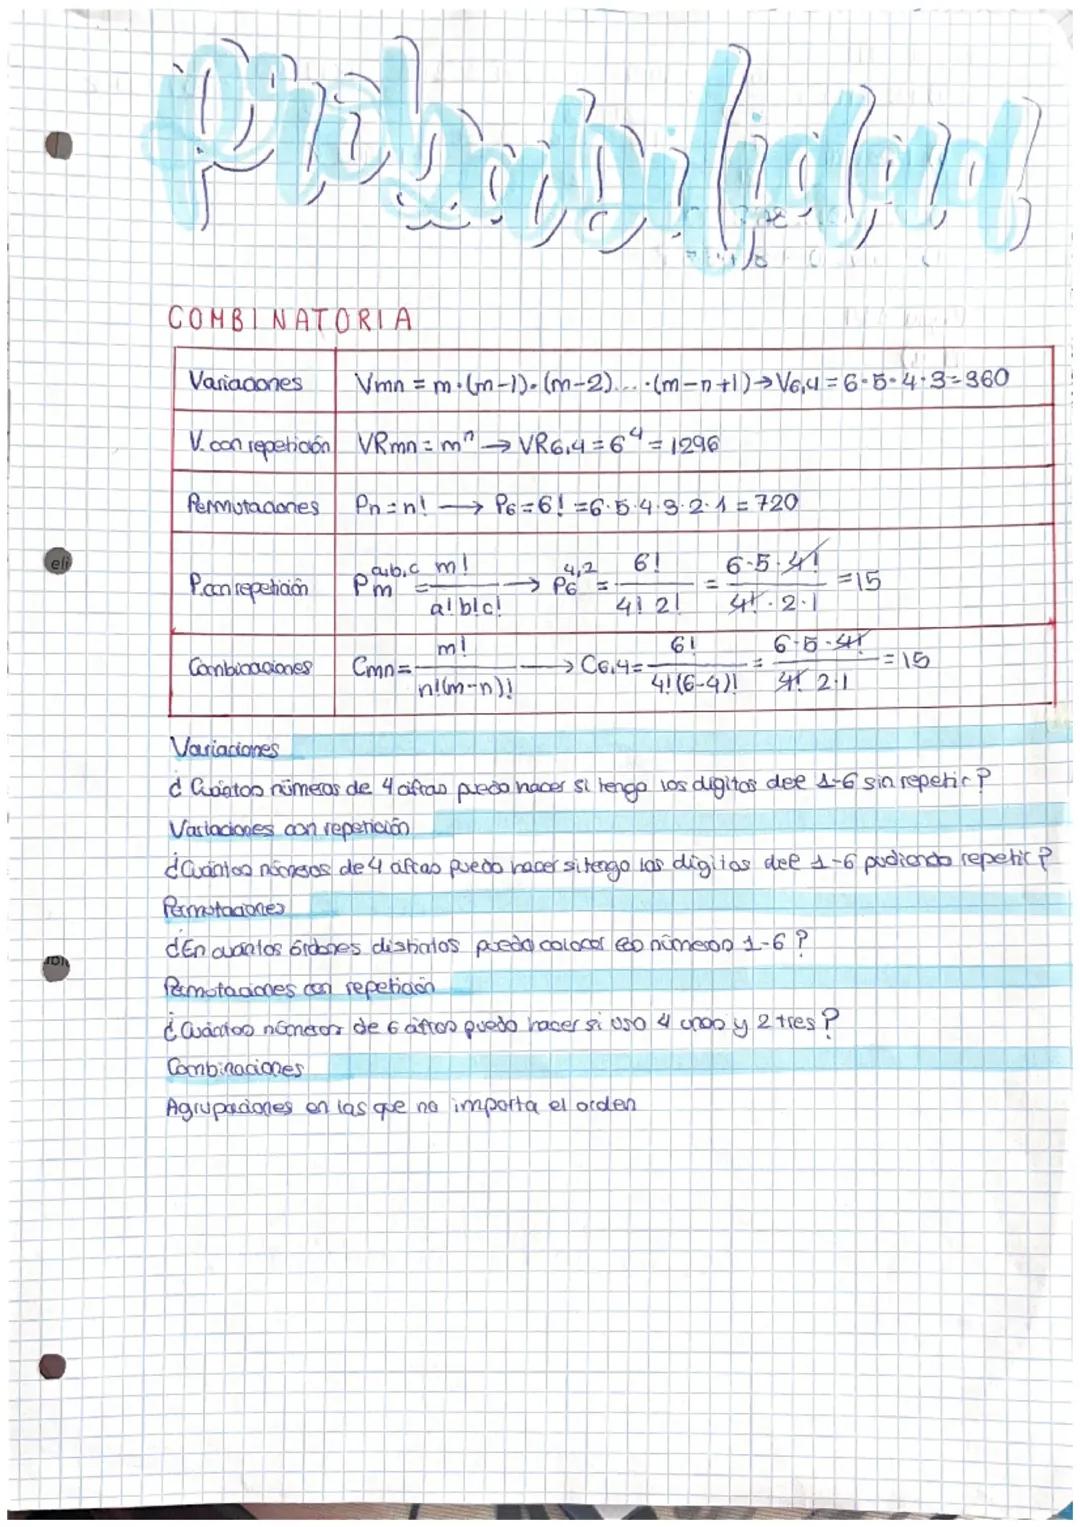 Probabilidad
COMBINATORIA
Variaciones Vmn = m·(m-1)·(m-2)...·(m-n+1) → V6,4 = 6·5·4·3 = 360
V. con repetición VRmn = mⁿ → VR6,4 = 6⁴ = 1296
Permutaciones Pn = n! → P6 = 6! = 6·5·4·3·2·1 = 720
P. con repetición Pm^a,b,c = m! / a!b!c! → P6^4,2 = 6! / 4! 2! = 6·5·4! / 4!·2·1 = 15
Combinaciones Cmn = m! / n!(m-n)! → C6,4 = 6! / 4!(6-4)! = 6·5·4! / 4! 2·1 = 15
Variaciones
¿Cuántos números de 4 cifras puedo hacer si tengo los dígitos del 1-6 sin repetir?
Variaciones con repetición
¿Cuántos números de 4 cifras puedo hacer si tengo los dígitos del 1-6 pudiendo repetir?
Permutaciones
¿En cuantos órdenes distintos puedo colocar los números 1-6?
Permutaciones con repetición
¿Cuántos números de 6 cifras puedo hacer si uso 4 unos y 2 tres?
Combinaciones
Agrupaciones en las que no importa el orden